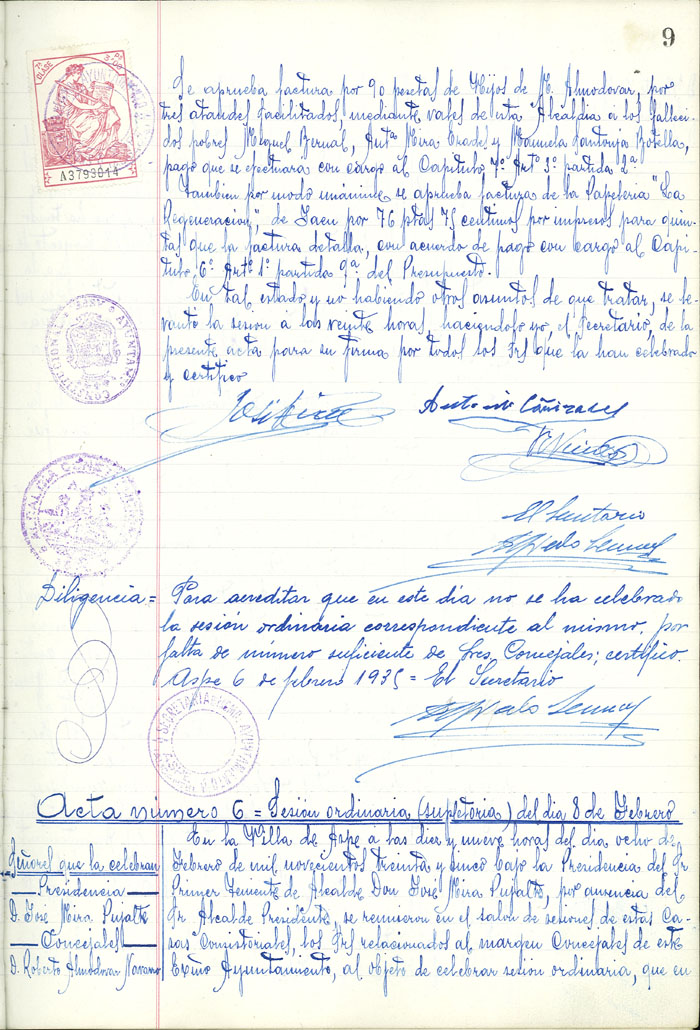 9
A3793014
Se aprueba factura por 90 pesetas de Hijos de M. Almodovar, por
tres ataudes facilitados mediante vales de esta Alcaldia a los falleci-
dos pobres Miguel Bernal, Antº Mira Prades y Manuela Santonja Botella,
pago que se efectuará con cargo al Capitulo 7º Artº 3º partida 2ª
Tambien por modo unánime se aprueba factura de la Papeteria "La
Regeneracion", de Jaen por 76 ptas 75 centimos por impresos para quin-
tas que la factura detalla, con acuerdo de pago con cargo al Capi-
tulo 6º Artº 1º partida 9ª del Presupuesto.
En tal estado y no habiendo otros asuntos de que tratar, se le-
vanto la sesion a las veinte horas, haciendolo yo, el Secretario, de la
presente acta para su firma por todos los Srs que la han celebrado
y certifico
José Mira
Antonio Cañizares
El Secretario
Diligencia = Para acreditar que en este día no se ha celebrado
la sesión ordinaria correspondiente al mismo, por
falta de número suficiente de Sres. Concejales; certifico.
Aspe 6 de febrero 1935 = El Secretario
Acta número 6 = Sesión ordinaria (supletoria) del dia 8 de Febrero
En la Villa de Aspe a las diez y nueve horas del dia ocho de
Señores que la celebran Febrero de mil novecientos treinta y cinco bajo la Presidencia del Sr
Presidencia Primer Teniente de Alcalde Don José Mira Pujalte, por ausencia del
D. José Mira Pujalte Sr Alcalde Presidente, se reunieron en el salon de sesiones de estas Ca-
Concejales sas Consistoriales, los Srs relacionados al margen Concejales de este
D. Roberto Almodovar Navarro Excmo Ayuntamiento, al objeto de celebrar sesión ordinaria, que en